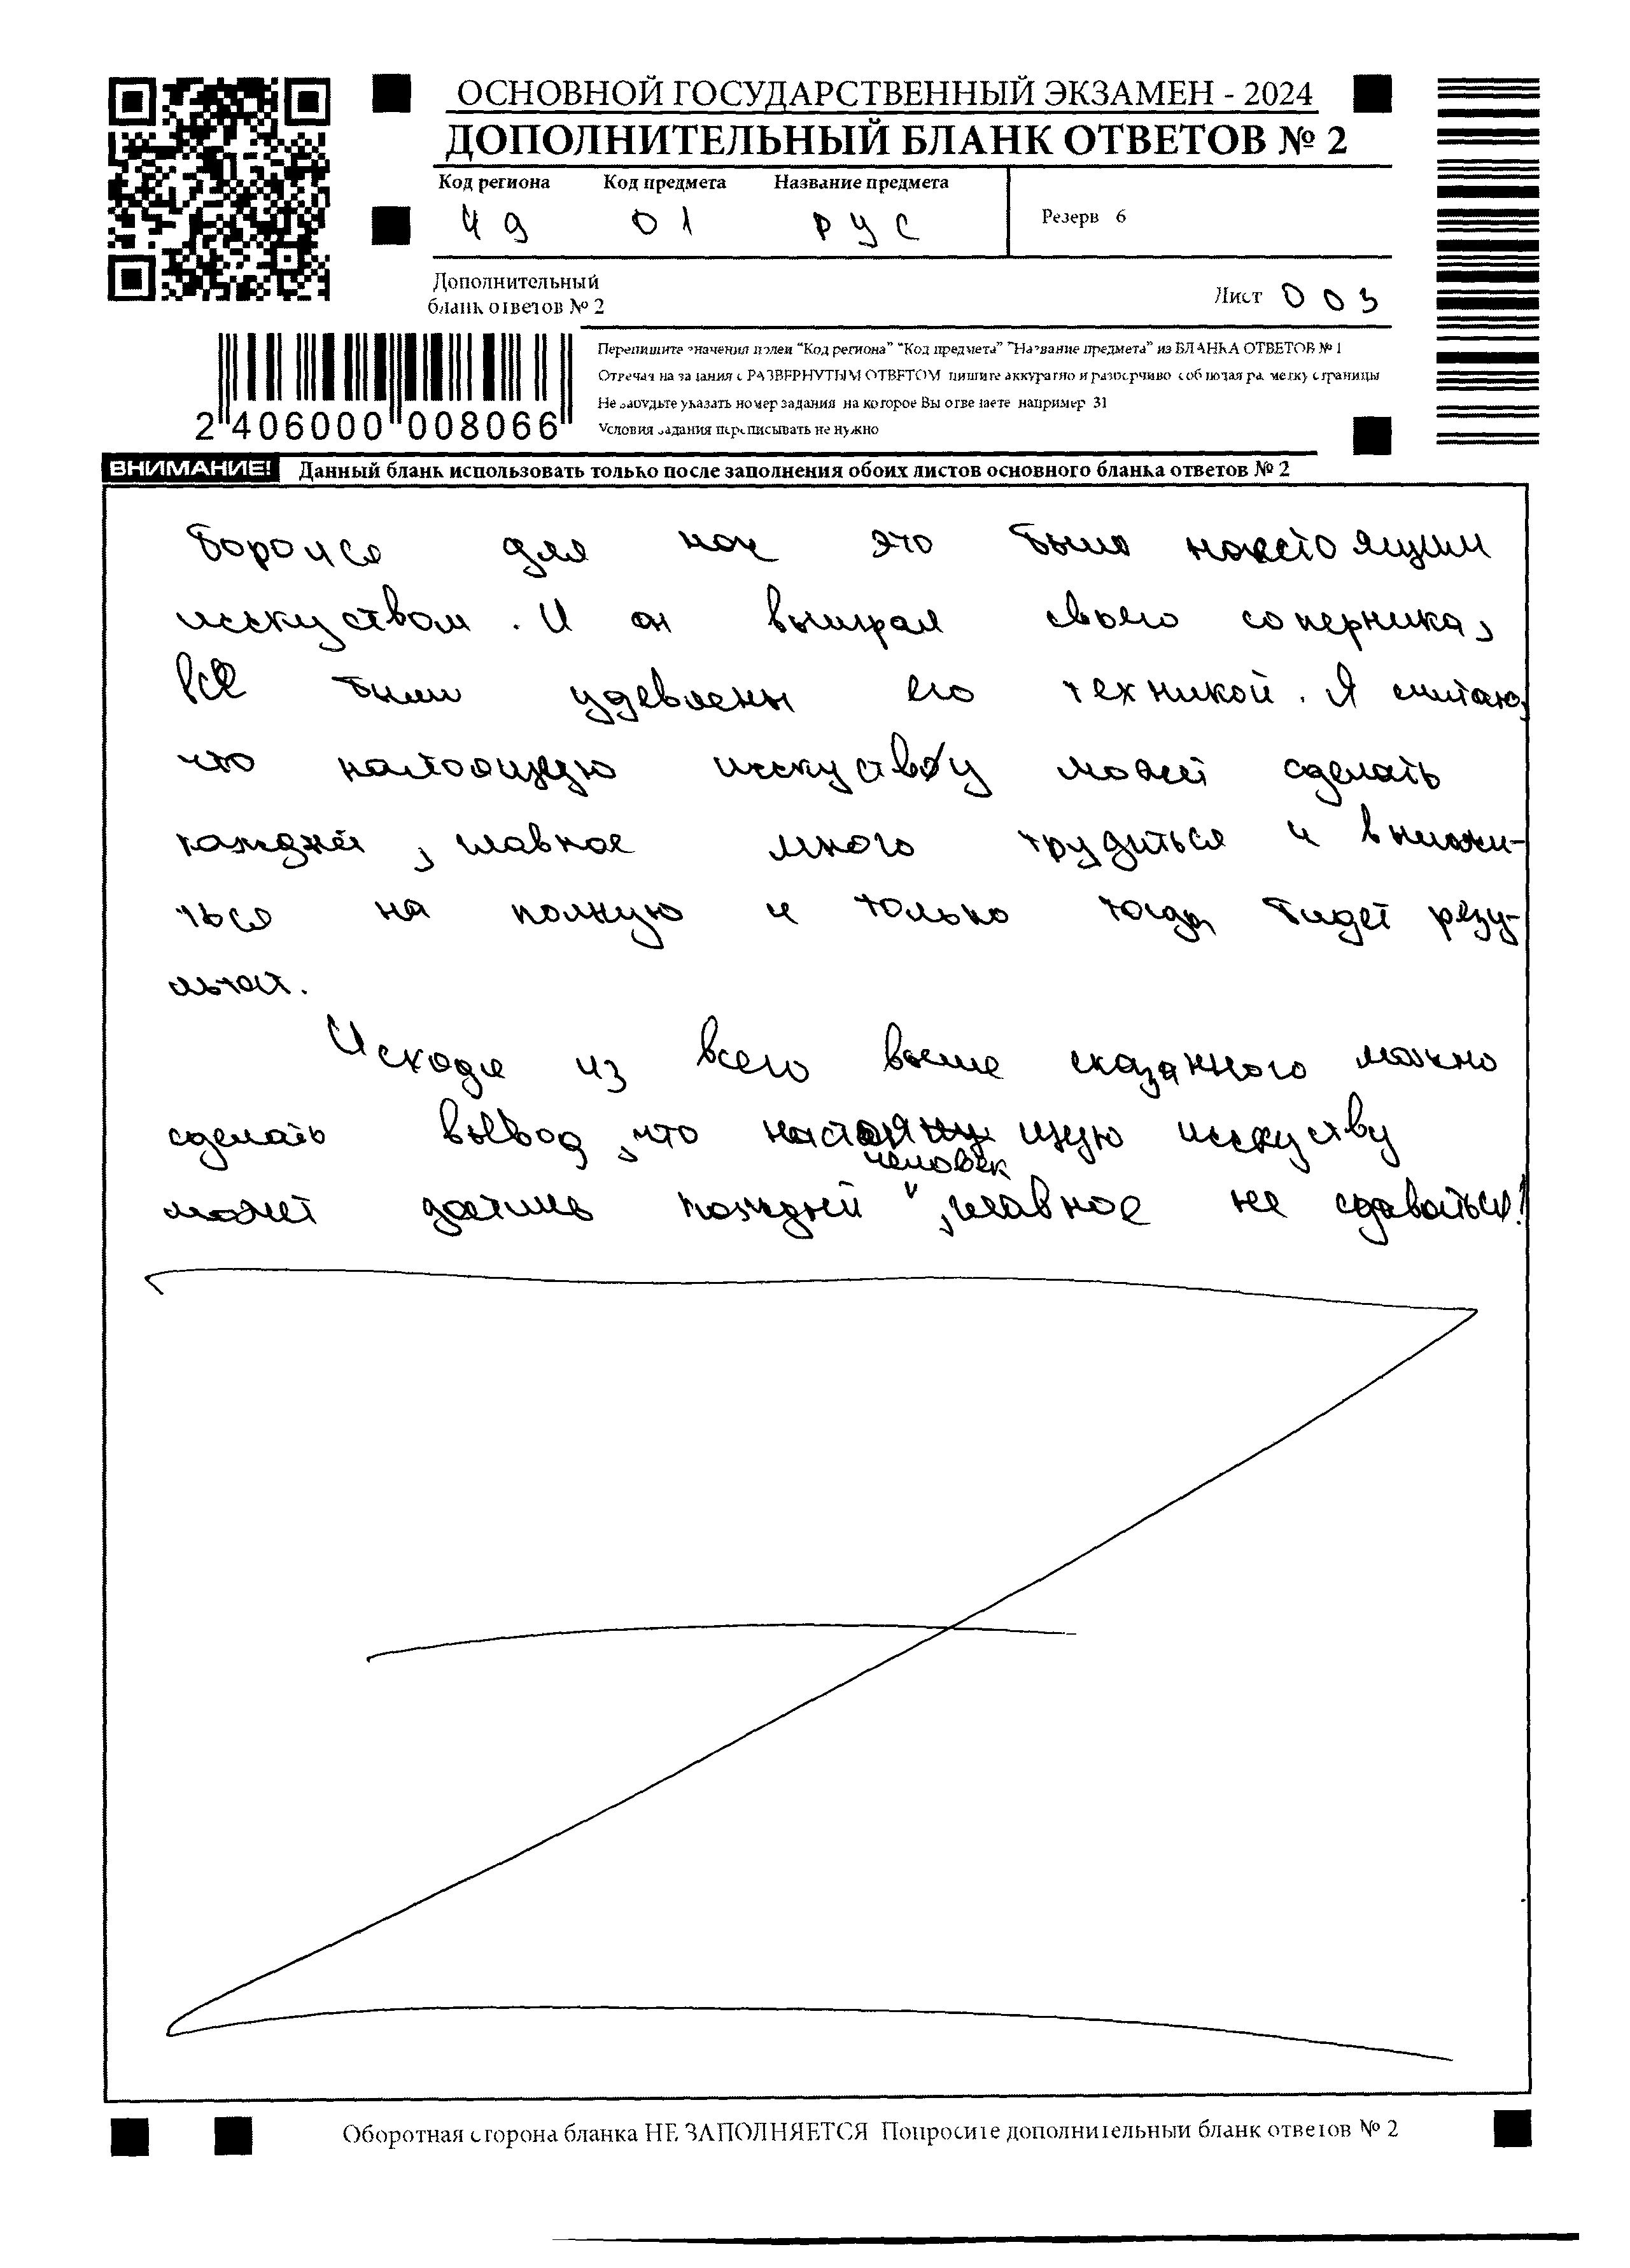 ОСНОВНОЙ ГОСУДАРСТВЕННЫЙ ЭКЗАМЕН - 2024
ДОПОЛНИТЕЛЬНЫЙ БЛАНК ОТВЕТОВ № 2
Код региона Код предмета Название предмета
49 01 РУС
Резерв 6
Дополнительный
бланк ответов № 2
Лист 003
Перепишите значения полей "Код региона" "Код предмета" "Название предмета" из БЛАНКА ОТВЕТОВ № 1
Отвечая на задания с РАЗВЕРНУТЫМ ОТВЕТОМ пишите аккуратно и разборчиво соблюдая разметку страницы
Не забудьте указать номер задания на которое Вы отвечаете например 31
Условия задания переписывать не нужно
2 406000 008066
ВНИМАНИЕ! Данный бланк использовать только после заполнения обоих листов основного бланка ответов № 2
боролся для нас это было настоящим
исскуством. И он выиграл своего соперника,
все были удевлены его техникой. Я считаю,
что настоящую исскуству может сделать
каждый, главное много трудиться и вложи-
ться на полную и только тогда будет резу-
льтат.
Исходя из всего выше сказанного можно
сделать вывод, что настоящую исскуству
человек
может достичь каждый, главное не сдаваться!
Оборотная сторона бланка НЕ ЗАПОЛНЯЕТСЯ Попросите дополнительный бланк ответов № 2